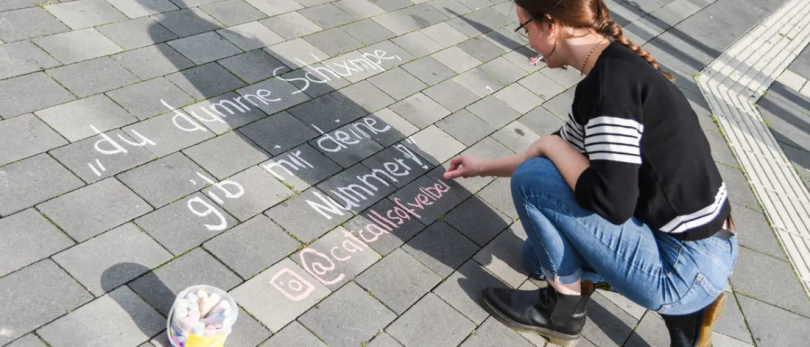 „du dumme Schlampe,
gib mir deine
Nummer!“
@catcallsofvelbert